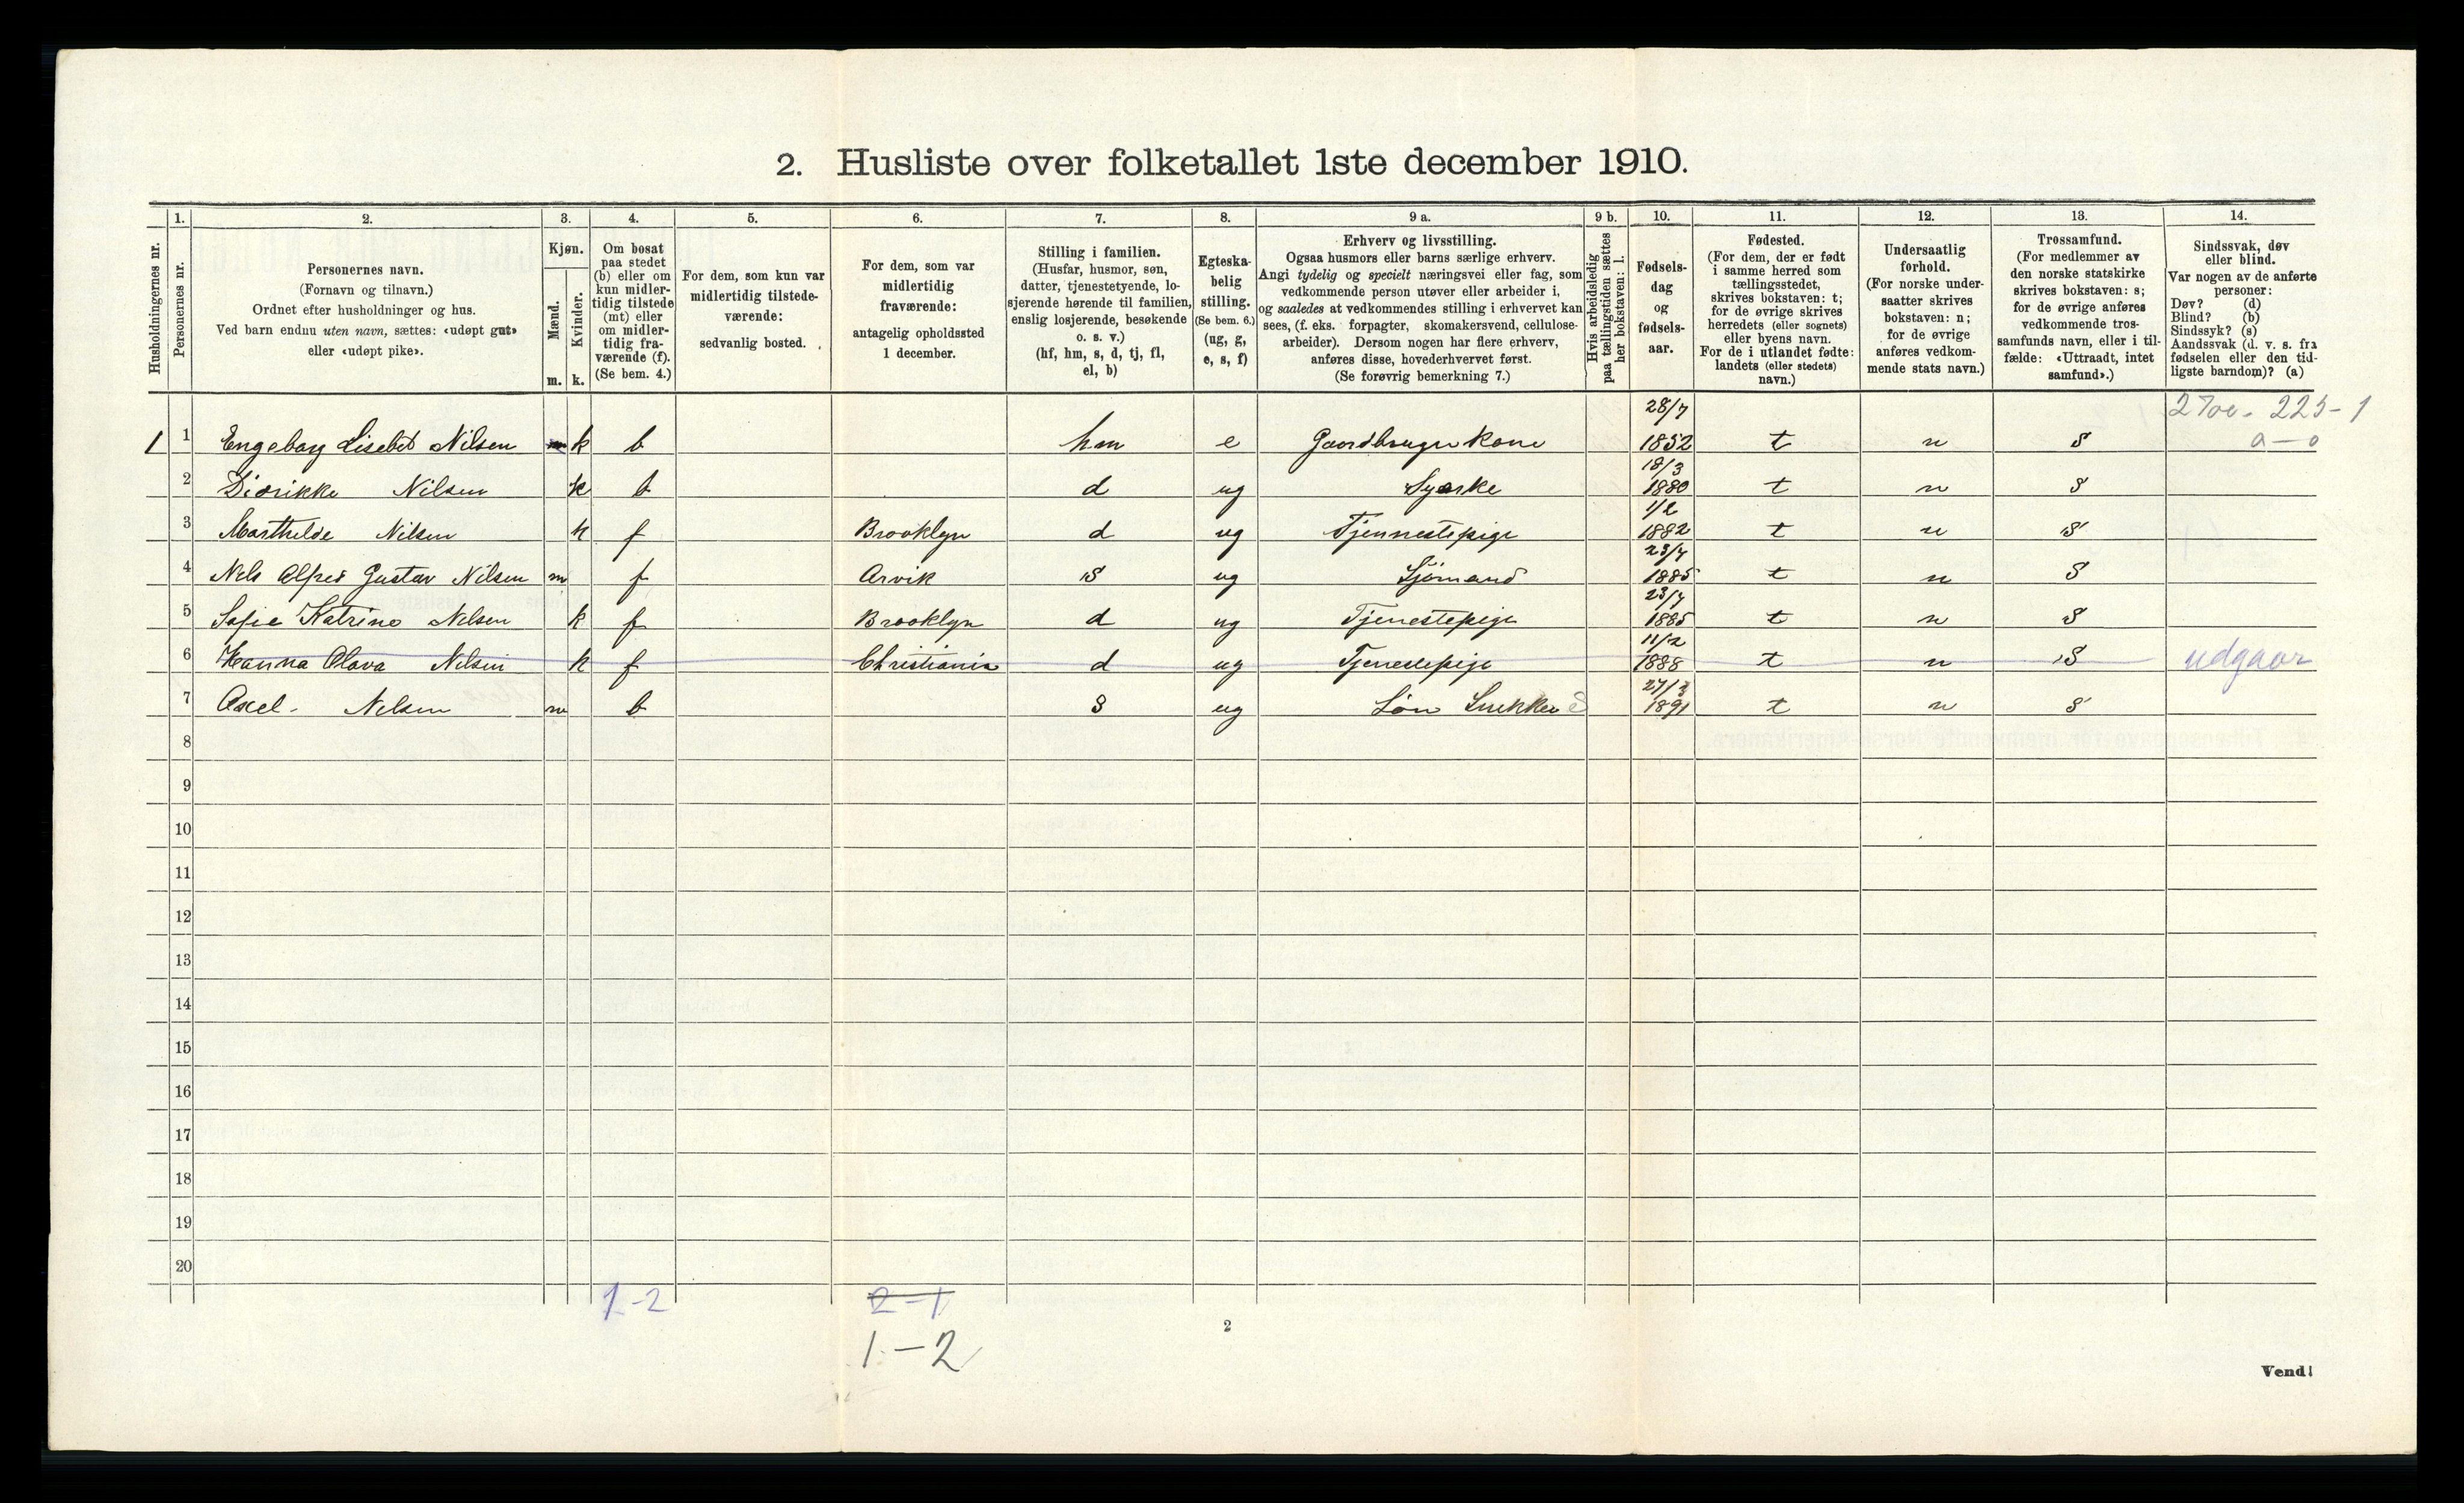 2. Husliste over folketallet 1ste december 1910.
Husholdningernes nr.
1.
Personernes nr.
2.
Personernes navn.
(Fornavn og tilnavn.)
Ordnet efter husholdninger og hus.
Ved barn endnu uten navn, sættes: «udøpt gut»
eller «udøpt pike».
3.
Kjøn.
Mænd.
m.
Kvinder.
k.
4.
Om bosat
paa stedet
(b) eller om
kun midler-
tidig tilstede
(mt) eller
om midler-
tidig fra-
værende (f).
(Se bem. 4.)
5.
For dem, som kun var
midlertidig tilstede-
værende:
sedvanlig bosted.
6.
For dem, som var
midlertidig
fraværende:
antagelig opholdssted
1 december.
7.
Stilling i familien.
(Husfar, husmor, søn,
datter, tjenestetyende, lo-
sjerende hørende til familien,
enslig losjerende, besøkende
o. s. v.)
(hf, hm, s, d, tj, fl,
el, b)
8.
Egteska-
belig
stilling.
(Se bem. 6.)
(ug, g,
e, s, f)
9 a.
Erhverv og livsstilling.
Ogsaa husmors eller barns særlige erhverv.
Angi tydelig og specielt næringsvei eller fag, som
vedkommende person utøver eller arbeider i,
og saaledes at vedkommendes stilling i erhvervet kan
sees, (f. eks. forpagter, skomakersvend, cellulose-
arbeider). Dersom nogen har flere erhverv,
anføres disse, hovederhvervet først.
(Se forøvrig bemerkning 7.)
9 b.
Hvis arbeidsledig
paa tællingstiden sættes
her bokstaven: l.
10.
Fødsels-
dag
og
fødsels-
aar.
11.
Fødested.
(For dem, der er født
i samme herred som
tællingsstedet,
skrives bokstaven: t;
for de øvrige skrives
herredets (eller sognets)
eller byens navn.
For de i utlandet fødte:
landets (eller stedets)
navn.)
12.
Undersaatlig
forhold.
(For norske under-
saatter skrives
bokstaven: n;
for de øvrige
anføres vedkom-
mende stats navn.)
13.
Trossamfund.
(For medlemmer av
den norske statskirke
skrives bokstaven: s;
for de øvrige anføres
vedkommende tros-
samfunds navn, eller i til-
fælde: «Uttraadt, intet
samfund».)
14.
Sindssvak, døv
eller blind.
Var nogen av de anførte
personer:
Døv? (d)
Blind? (b)
Sindssyk? (s)
Aandssvak (d. v. s. fra
fødselen eller den tid-
ligste barndom)? (a)
225-1
a-0
1 1 Engeborg Lisebet Nilsen k b hm e Gaardbruger Kone 28/7 1852 t n S
2 Didrikke Nilsen k b d ug Syerske 18/3 1880 t n S
3 Marthilde Nilsen k f Brooklyn d ug Tjennestepige 1/2 1882 t n S
4 Nels Alfred Gustav Nilsen m f Arvik S ug Sjømand 23/7 1885 t n S
5 Sofie Katrine Nelsen k f Brooklyn d ug Tjenestepige 23/7 1885 t n S
6 Hanna Olava Nelsen k f Christiania d ug Tjenestepige 11/2 1888 t n S udgaar
7 Axel Nelsen m b S ug Søn Snekker 27/3 1891 t n S
8
9
10
11
12
13
14
15
16
17
18
19
20
1-2 2-1
1-2
2
Vend!